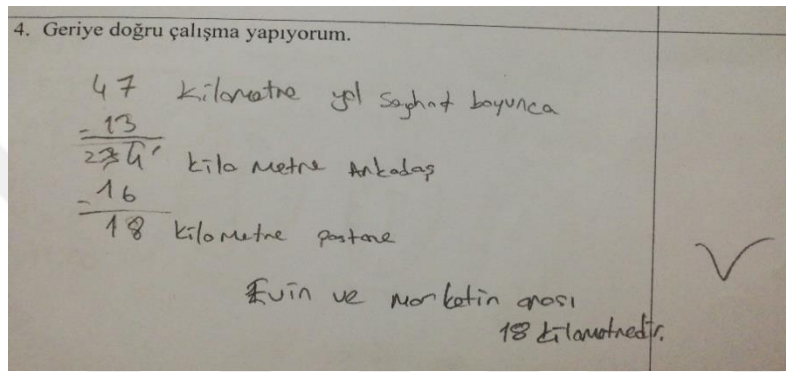 4. Geriye doğru çalışma yapıyorum.
47 kilometre yol Seyahat boyunca
- 13
34 kilo metre Arkadaş
- 16
18 kilometre pastane
Evin ve marketin arası
18 kilometredir.